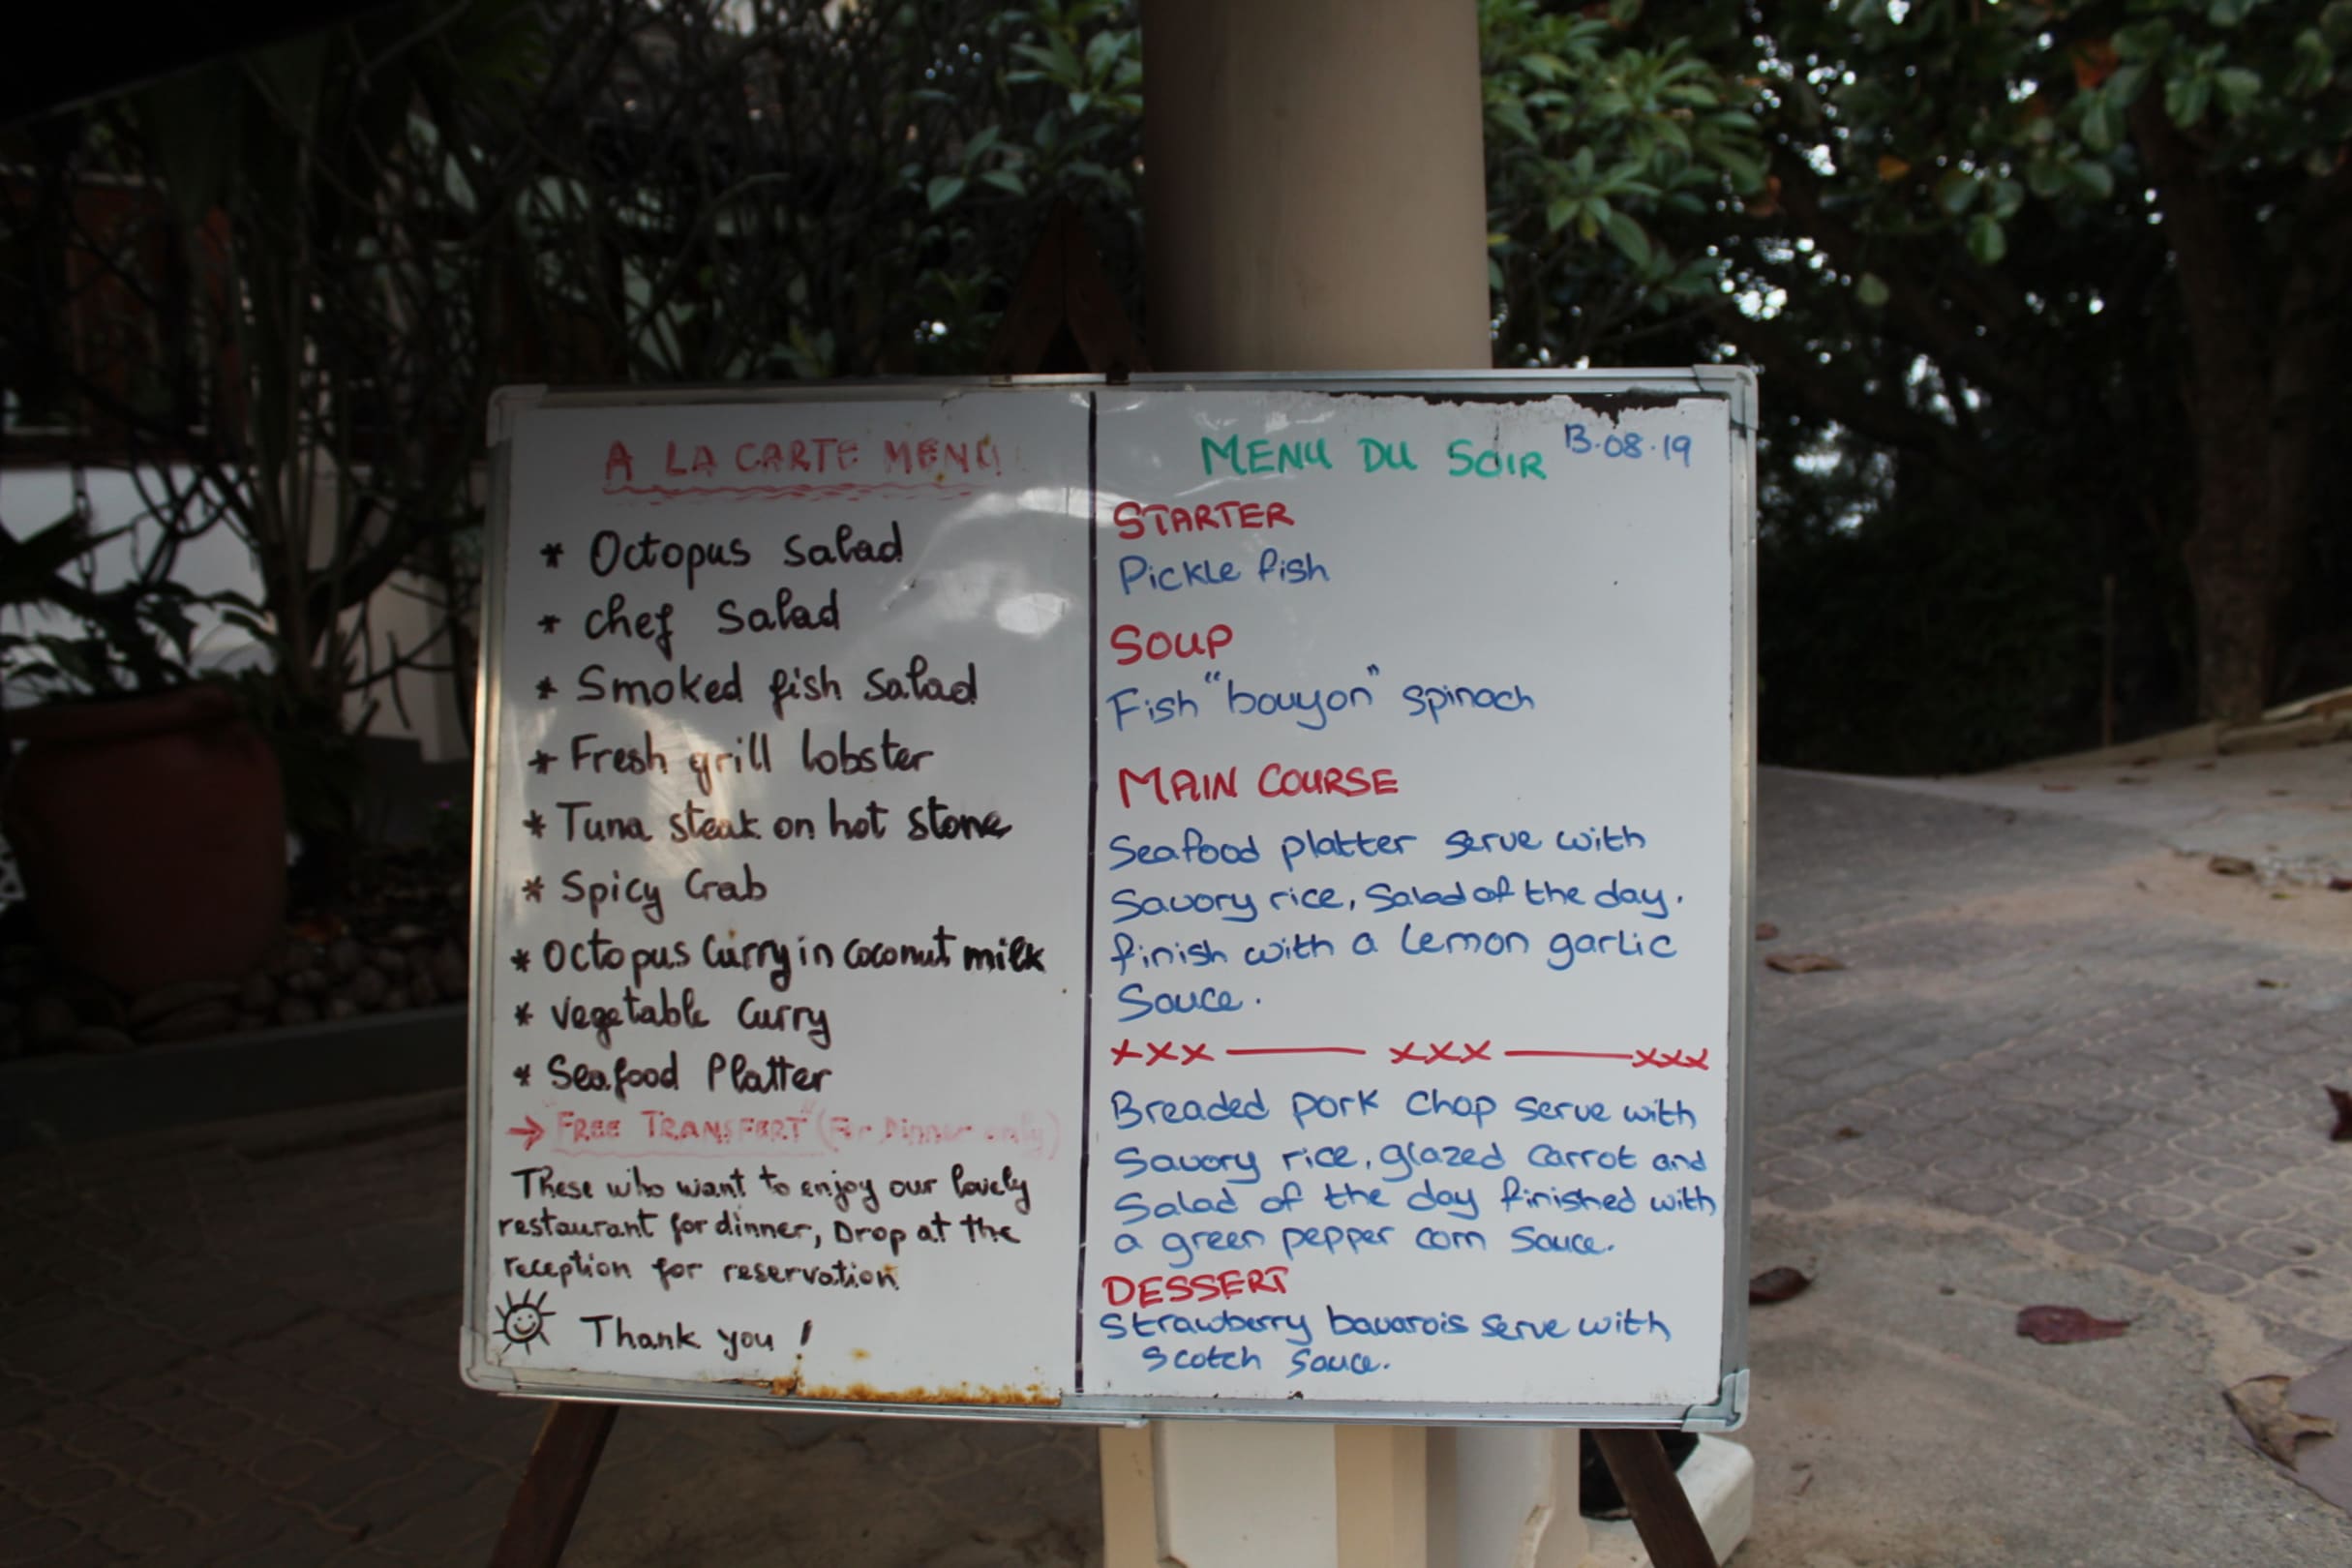 A LA CARTE MENU
* Octopus Salad
* Chef Salad
* Smoked fish Salad
* Fresh grill lobster
* Tuna steak on hot stone
* Spicy Crab
* Octopus Curry in Coconut milk
* Vegetable Curry
* Seafood Platter
→ "FREE TRANSFERT" (For Dinner only)
These who want to enjoy our lovely
restaurant for dinner, Drop at the
reception for reservation
Thank you !
MENU DU SOIR 13.08.19
STARTER
Pickle fish
SOUP
Fish "bouyon" spinach
MAIN COURSE
Seafood platter serve with
Savory rice, Salad of the day.
finish with a Lemon garlic
Sauce.
xxx —— xxx —— xxx
Breaded pork Chop serve with
Savory rice, glazed Carrot and
Salad of the day finished with
a green pepper corn Sauce.
DESSERT
Strawberry bavarois serve with
Scotch Sauce.